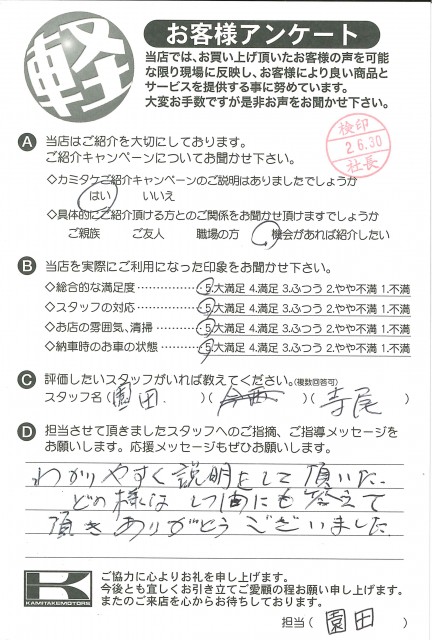 軽
お客様アンケート
当店では、お買い上げ頂いたお客様の声を可能
な限り現場に反映し、お客様により良い商品と
サービスを提供する事に努めています。
大変お手数ですが是非お声をお聞かせ下さい。
A 当店はご紹介を大切にしております。
ご紹介キャンペーンについてお聞かせ下さい。
検印
2.6.30
社長
◇カミタケご紹介キャンペーンのご説明はありましたでしょうか
はい いいえ
◇具体的にご紹介頂ける方とのご関係をお聞かせ頂けますでしょうか
ご親族 ご友人 職場の方 機会があれば紹介したい
B 当店を実際にご利用になった印象をお聞かせ下さい。
◇総合的な満足度……………5.大満足 4.満足 3.ふつう 2.やや不満 1.不満
◇スタッフの対応……………5.大満足 4.満足 3.ふつう 2.やや不満 1.不満
◇お店の雰囲気、清掃………5.大満足 4.満足 3.ふつう 2.やや不満 1.不満
◇納車時のお車の状態………5.大満足 4.満足 3.ふつう 2.やや不満 1.不満
C 評価したいスタッフがいれば教えてください。(複数回答可)
スタッフ名(園田)( )(寺尾)
D 担当させて頂きましたスタッフへのご指摘、ご指導メッセージを
お願いします。応援メッセージもぜひお願いします。
わかりやすく説明をして頂いた。
どの様な しつ面にも答えて
頂きありがとうございました
K
KAMITAKEMOTORS
ご協力に心よりお礼を申し上げます。
今後とも宜しくお引き立てご愛顧の程お願い申し上げます。
またのご来店を心からお待ちしております。
担当(園田)